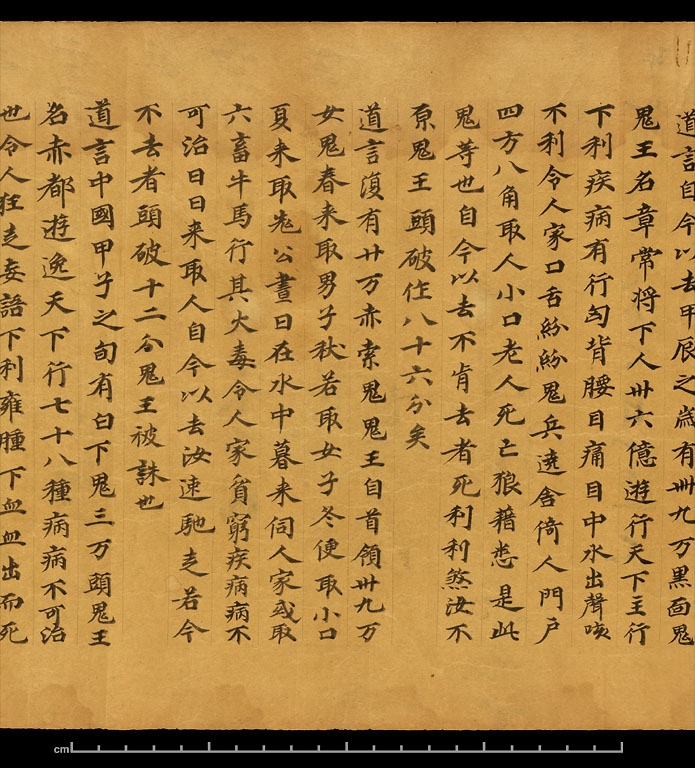 道言自今以去甲辰之歲有卌九万黑面鬼
鬼王名章常将下人卌六億遊行天下主行
下利疾病有行匈背腰目痛目中水出聲咳
不利令人家口舌紛紛鬼兵遶舍倚人門户
四方八角取人小口老人死亡狼藉悉是此
鬼等也自今以去不肯去者死利利煞汝不
原鬼王頭破作八十六分矣
道言復有廿万赤索鬼鬼王自首領卌九万
女鬼春来取男子秋若取女子冬便取小口
夏来取老公晝日在水中暮来伺人家或取
六畜牛馬行其火毒令人家貧窮疾病病不
可治日日来取人自今以去汝速馳走若今
不去者頭破十二分鬼王被誅也
道言中國甲子之旬有白下鬼三万頭鬼王
名赤都遊逸天下行七十八種病病不可治
世令人狂走妄語下利雍腫下血血出而死